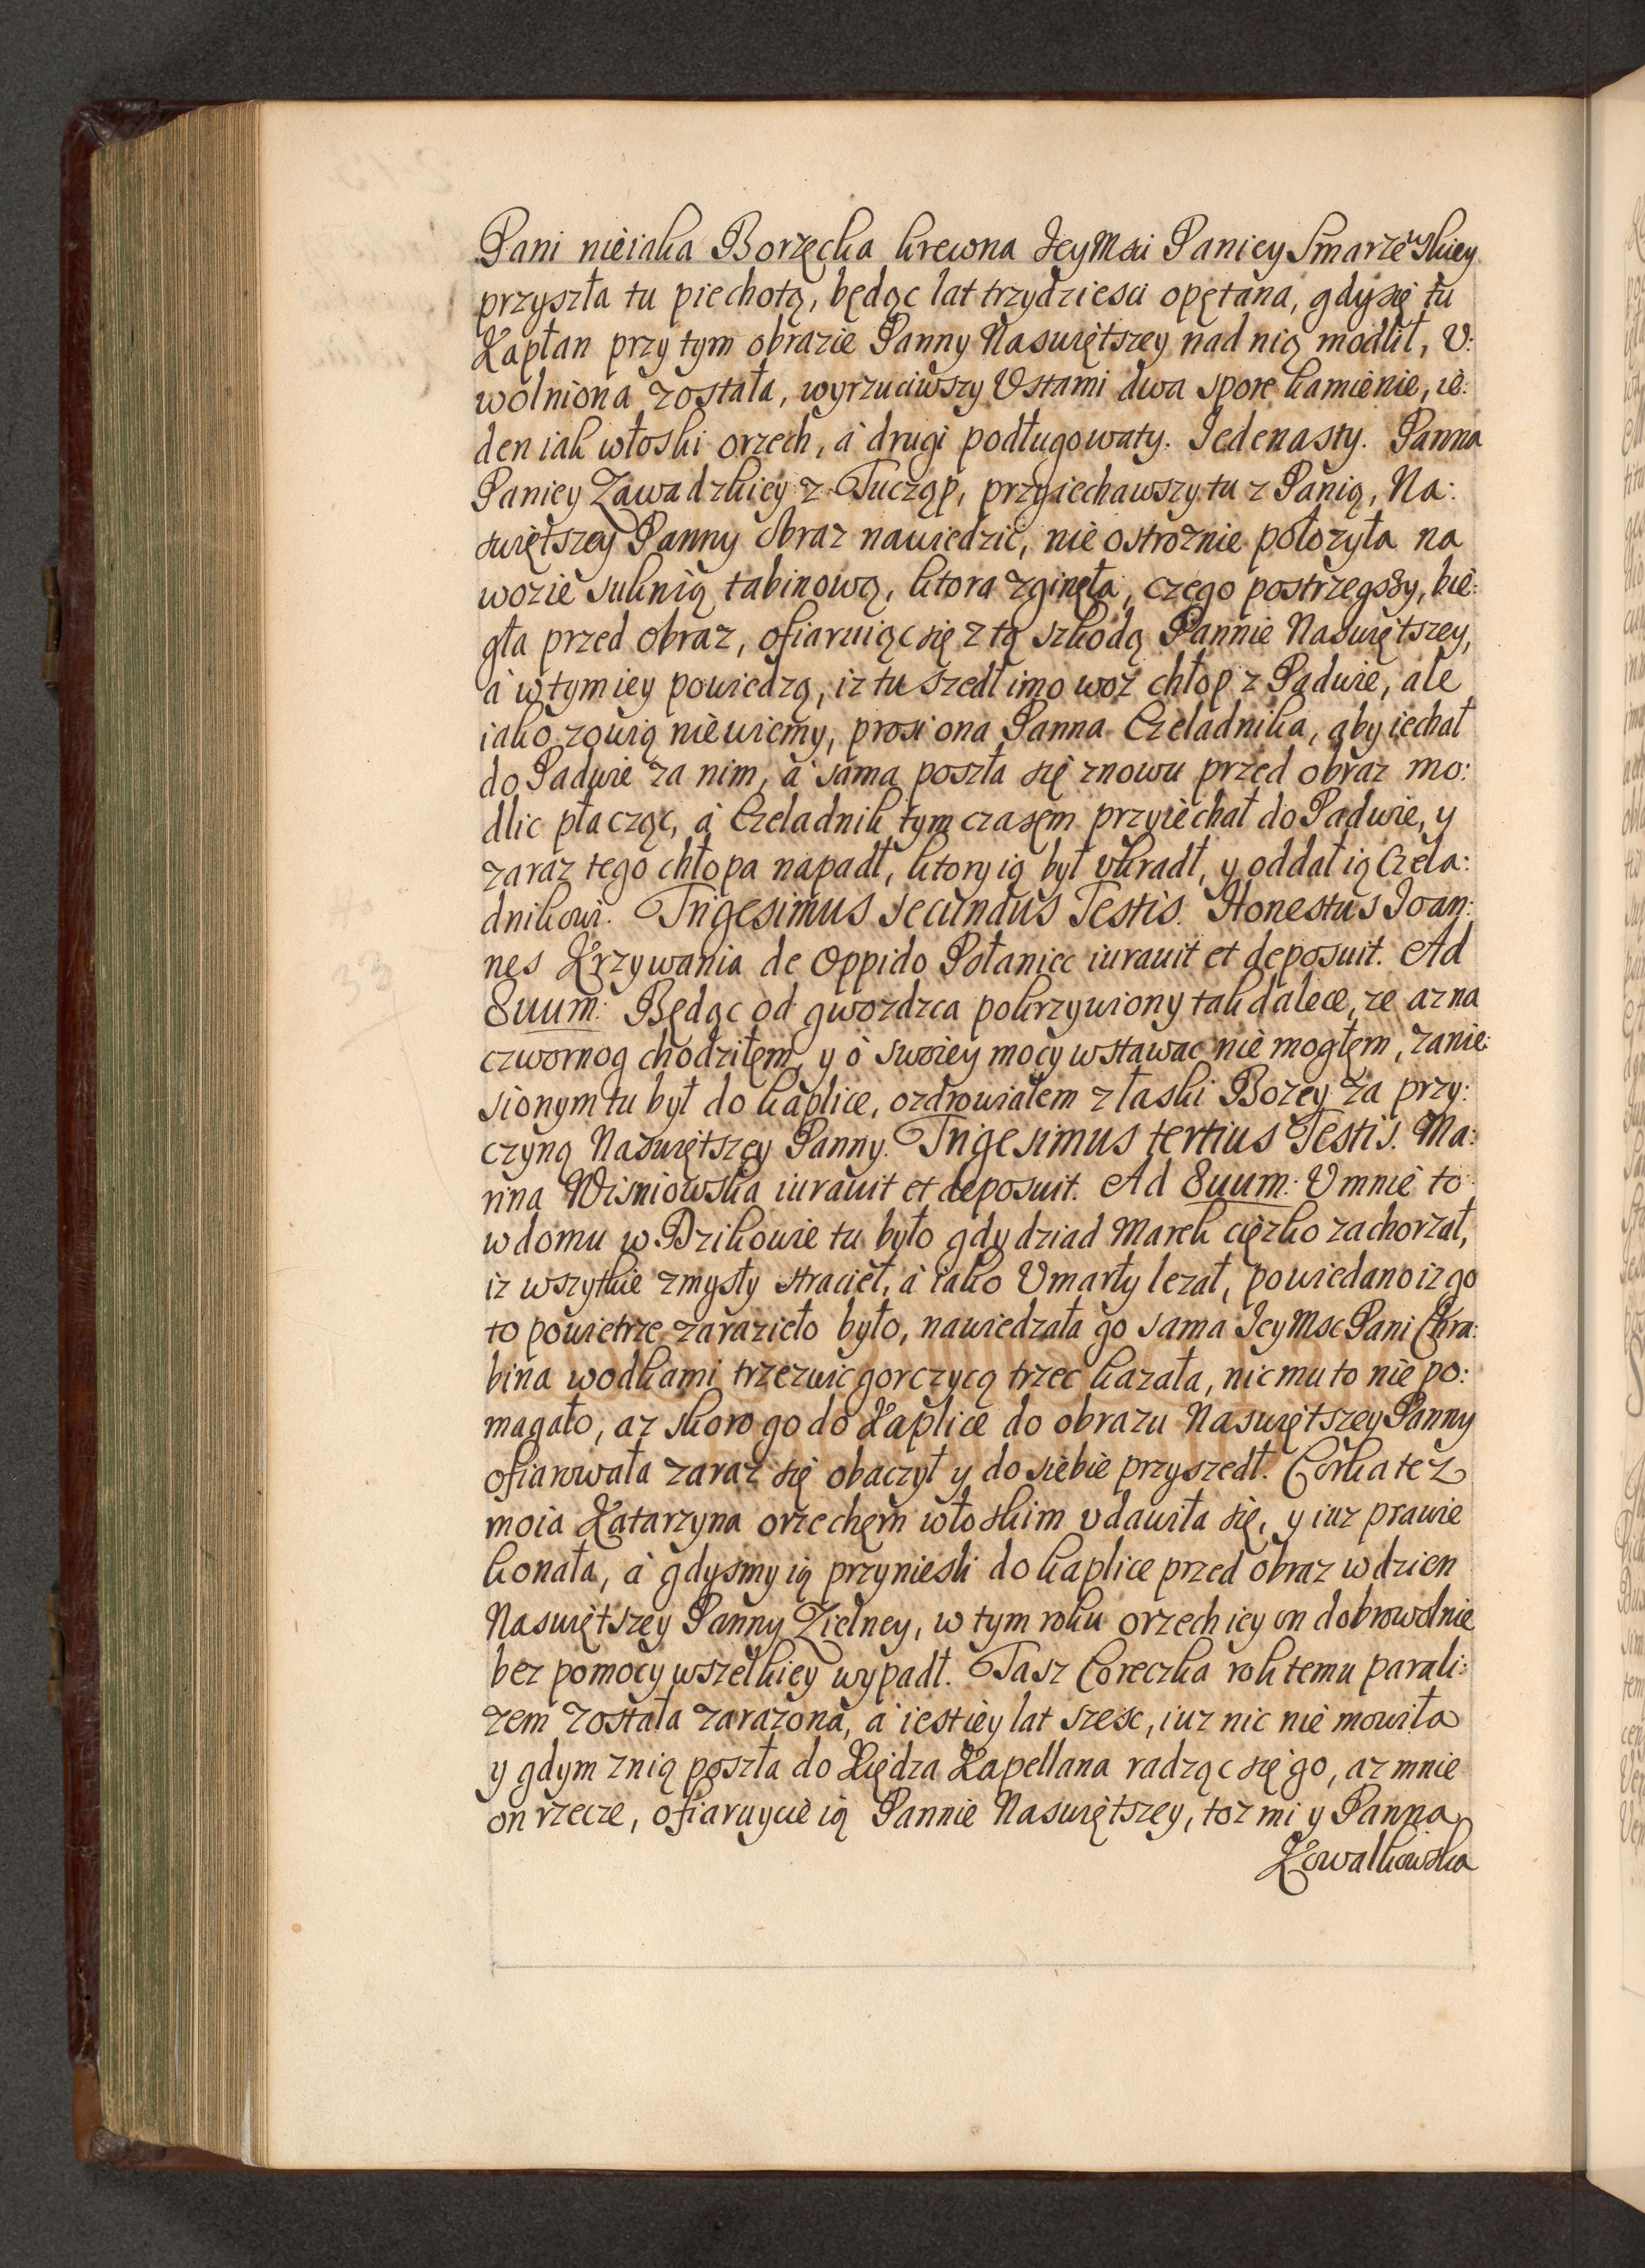 Pani nieiaka Borzęcka krewna JeyMsci Paniey Smarzewskiey
przyszła tu piechotą, będąc lat trzydziesci opętana, gdy się tu
Kapłan przy tym obrazie Panny Naswiętszey nad nią modlił, V:
wolniona została, wyrzuciwszy Vstami dwa spore kamienie, ie:
den iak włoski orzech, á drugi podługowaty. Jedenasty. Panna
Paniey Zawadzkiey z Tucząp, przyiechawszy tu z Panią, Na:
swiętszey Panny obraz nawiedzic, nie ostroznie połozyła na
wozie suknią tabinową, ktora zginęła, czego postrzegszy, bie:
gła przed obraz, ofiaruiąc się z tą szkodą Pannie Naswiętszey,
á w tym iey powiedzą, iz tu szedł imo woz chłop z Padwie, ale
iako zowią nie wiemy, prosiona Panna Czeladnika, aby iechał
do Padwie za nim, á sama poszła się znowu przed obraz mo:
dlic płacząc, á Czeladnik tym czasem przyiechał do Padwie, y
zaraz tego chłopa napadł, ktory ią był vkradł, y oddał ią Czela:
dnikowi. Trigesimus secundus Testis. Honestus Joan:
nes Krzywania de Oppido Połaniec iurauit et deposuit. Ad
8uum: Będąc od gwozdzca pokrzywiony tak dalece, ze az na
czwornog chodziłem, y o swoiey mocy wstawac nie mogłem, zanie:
sionym tu był do kaplice, ozdrowiałem z łaski Bozey za przy:
czyną Naswiętszey Panny. Trigesimus tertius Testis. Ma:
rina Wisniowska iurauit et deposuit. Ad 8uum: V mnie to
w domu w Dzikowie tu było gdy dziad Marek cięzko zachorzał,
iz wszytkie zmysły straciеł, á iako Vmarły lezał, powiedano iz go
to powietrze zarazieło było, nawiedzała go sama JeyMsc Pani Chra:
bina wodkami trzezwic gorczycą trzec kazała, nic mu to nie po:
magało, az skoro go do Kaplice do obrazu Naswiętszey Panny
ofiarowała zaraz się obaczył y do siebie przyszedł. Corka tez
moia Katarzyna orzechem włoskim vdawiła się, y iuz prawie
konała, á gdysmy ią przyniesli do kaplice przed obraz w dzien
Naswiętszey Panny Zielney, w tym roku orzech iey on dobrowolnie
bez pomocy wszelkiey wypadł. Tasz Coreczka rok temu parali:
zem została zarazona, á iest iey lat szesc, iuz nic nie mowiła
y gdym z nią poszła do Xiędza Kapellana radząc się go, az mnie
on rzecze, ofiaruycie ią Pannie Naswiętszey, toz mi y Panna
Kowalkowska